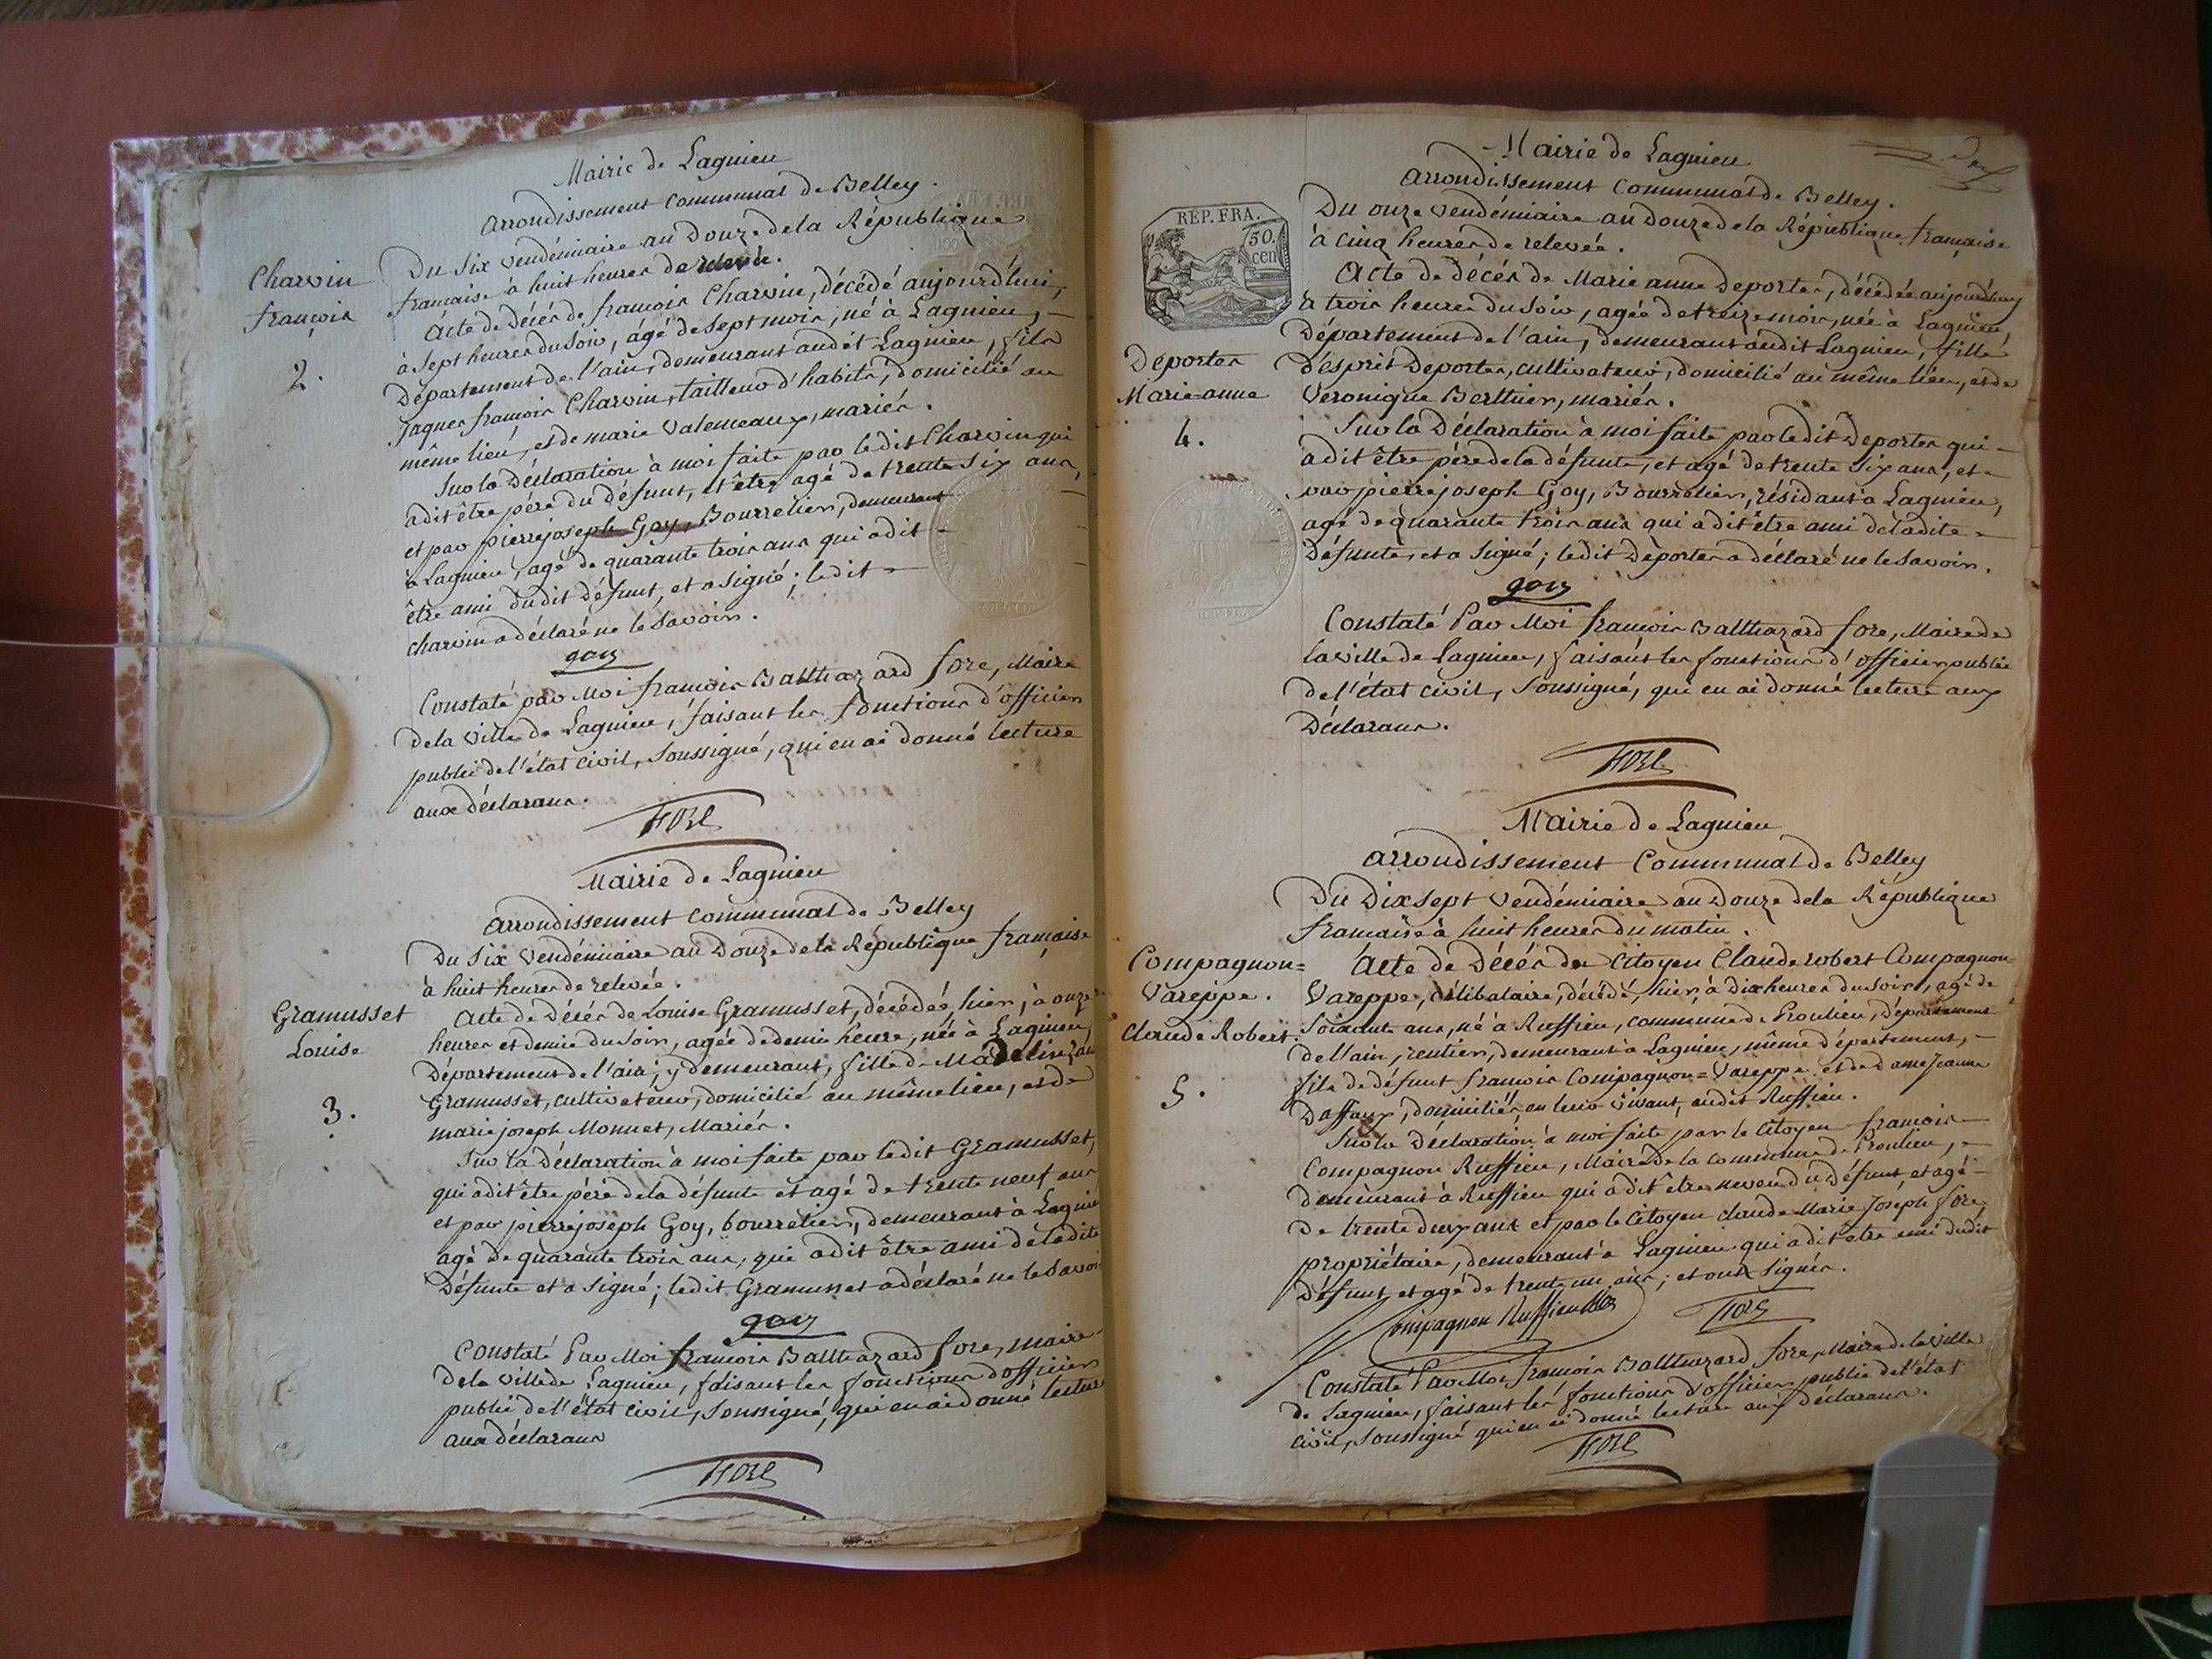 Mairie de Lagnieu
arrondissement communal de Belley.
Du six vendémiaire an Douze de la République
française à huit heures de relevée.
Charvin
françois
2.
Acte de Décès de françois Charvin, décédé aujourd'hui,
à sept heures du soir, âgé de sept mois, né à Lagnieu,
Département de l'ain, demeurant audit Lagnieu, fils
Jaques françois Charvin, tailleur d'habits, domicilié au
même lieu, et de marie Valenceaux, mariés.
Sur la Déclaration à moi faite par ledit Charvin qui
a dit être père du défunt, et être agé de trente six ans,
et par pierre joseph Goy, Bourrelier, demeurant
à Lagnieu, agé de quarante trois ans qui a dit
être ami dudit défunt, et a signé; ledit
charvin a déclaré ne le savoir.
goy
Constaté par Moi françois Balthazard fore, Maire
de la ville de Lagnieu, faisant les fonctions d'officier
public de l'état civil, soussigné, qui en ai donné lecture
aux déclarans.
FORE
Mairie de Lagnieu
arrondissement communal de Belley
Du six vendémiaire an Douze de la République française
à huit heures de relevée.
Gramusset
Louise
3.
Acte de Décès de Louise Gramusset, décédée, hier, à onze
heures et demie du soir, agée de demie heure, née à Lagnieu,
Département de l'ain, y demeurant, fille de
Gramusset, cultivateur, domicilié au même lieu, et de
marie joseph Monnet, Mariés.
Sur la Déclaration à moi faite par ledit Gramusset,
qui a dit être père de la défunte et agé de trente neuf ans
et par pierre joseph Goy, bourrelier, demeurant à Lagnieu
agé de quarante trois ans, qui a dit être ami de ladite
Défunte et a signé; ledit Gramusset a déclaré ne le savoir
goy
Constaté Par Moi françois Balthazard fore, maire
de la ville de Lagnieu, faisant les fonctions d'officier
public de l'état civil, soussigné, qui en ai donné lecture
aux déclarans
FORE
Mairie de Lagnieu
arrondissement communal de Belley.
REP. FRA.
50.
cen
Du onze vendémiaire an Douze de la République française
à cinq heures de relevée.
Deportes
Marie=anne
4.
Acte de décès de Marie anne Deportes, décédée aujourd'huy
à trois heures du soir, agée de treize mois, née à Lagnieu,
Département de l'ain, demeurant audit Lagnieu, fille
d'esprit Deportes, cultivateur, domicilié au même lieu, et de
Veronique Berthier, mariés.
Sur la Déclaration à moi faite par ledit Deportes qui
a dit être père de la défunte, et agé de trente six ans, et
par pierre joseph Goy, Bourrelier, résidant à Lagnieu,
agé de quarante trois ans qui a dit être ami de ladite
défunte, et a signé; ledit Deportes a déclaré ne le savoir.
goy
Constaté Par Moi françois Balthazard fore, Maire de
la ville de Lagnieu, faisant les fonctions d'officier public
de l'état civil, soussigné, qui en ai donné lecture aux
Déclarans.
FORE
Mairie de Lagnieu
arrondissement Communal de Belley
Du Dix sept vendémiaire an Douze de la République
française à huit heures du matin.
Compagnon=
Vareppe.
Claude Robert.
5.
Acte de Décès du Citoyen Claude robert Compagnon=
Vareppe, célibataire, décédé, hier, à dix heures du soir, agé de
soixante ans, né à Ruffieu, commune de Proulieu, département
de l'ain, rentier, demeurant à Lagnieu, même département,
fils de défunt françois Compagnon=Vareppe et de dame Jeanne
Daffaux, domiciliés, en leur vivant, audit Ruffieu.
Sur la Déclaration à moi faite par le Citoyen françois
Compagnon Ruffieu, Maire de la commune de Proulieu,
demeurant à Ruffieu qui a dit être neveu du défunt, et agé
de trente deux ans et par le Citoyen claude Marie Joseph fore
propriétaire, demeurant à Lagnieu qui a dit être ami dudit
Défunt et agé de trente un ans; et ont signés.
Compagnon Ruffieu fore
Constaté Par Moi françois Balthazard fore, Maire de la ville
de Lagnieu, faisant les fonctions d'officier public de l'état
civil, soussigné qui en ai donné lecture aux déclarans.
FORE